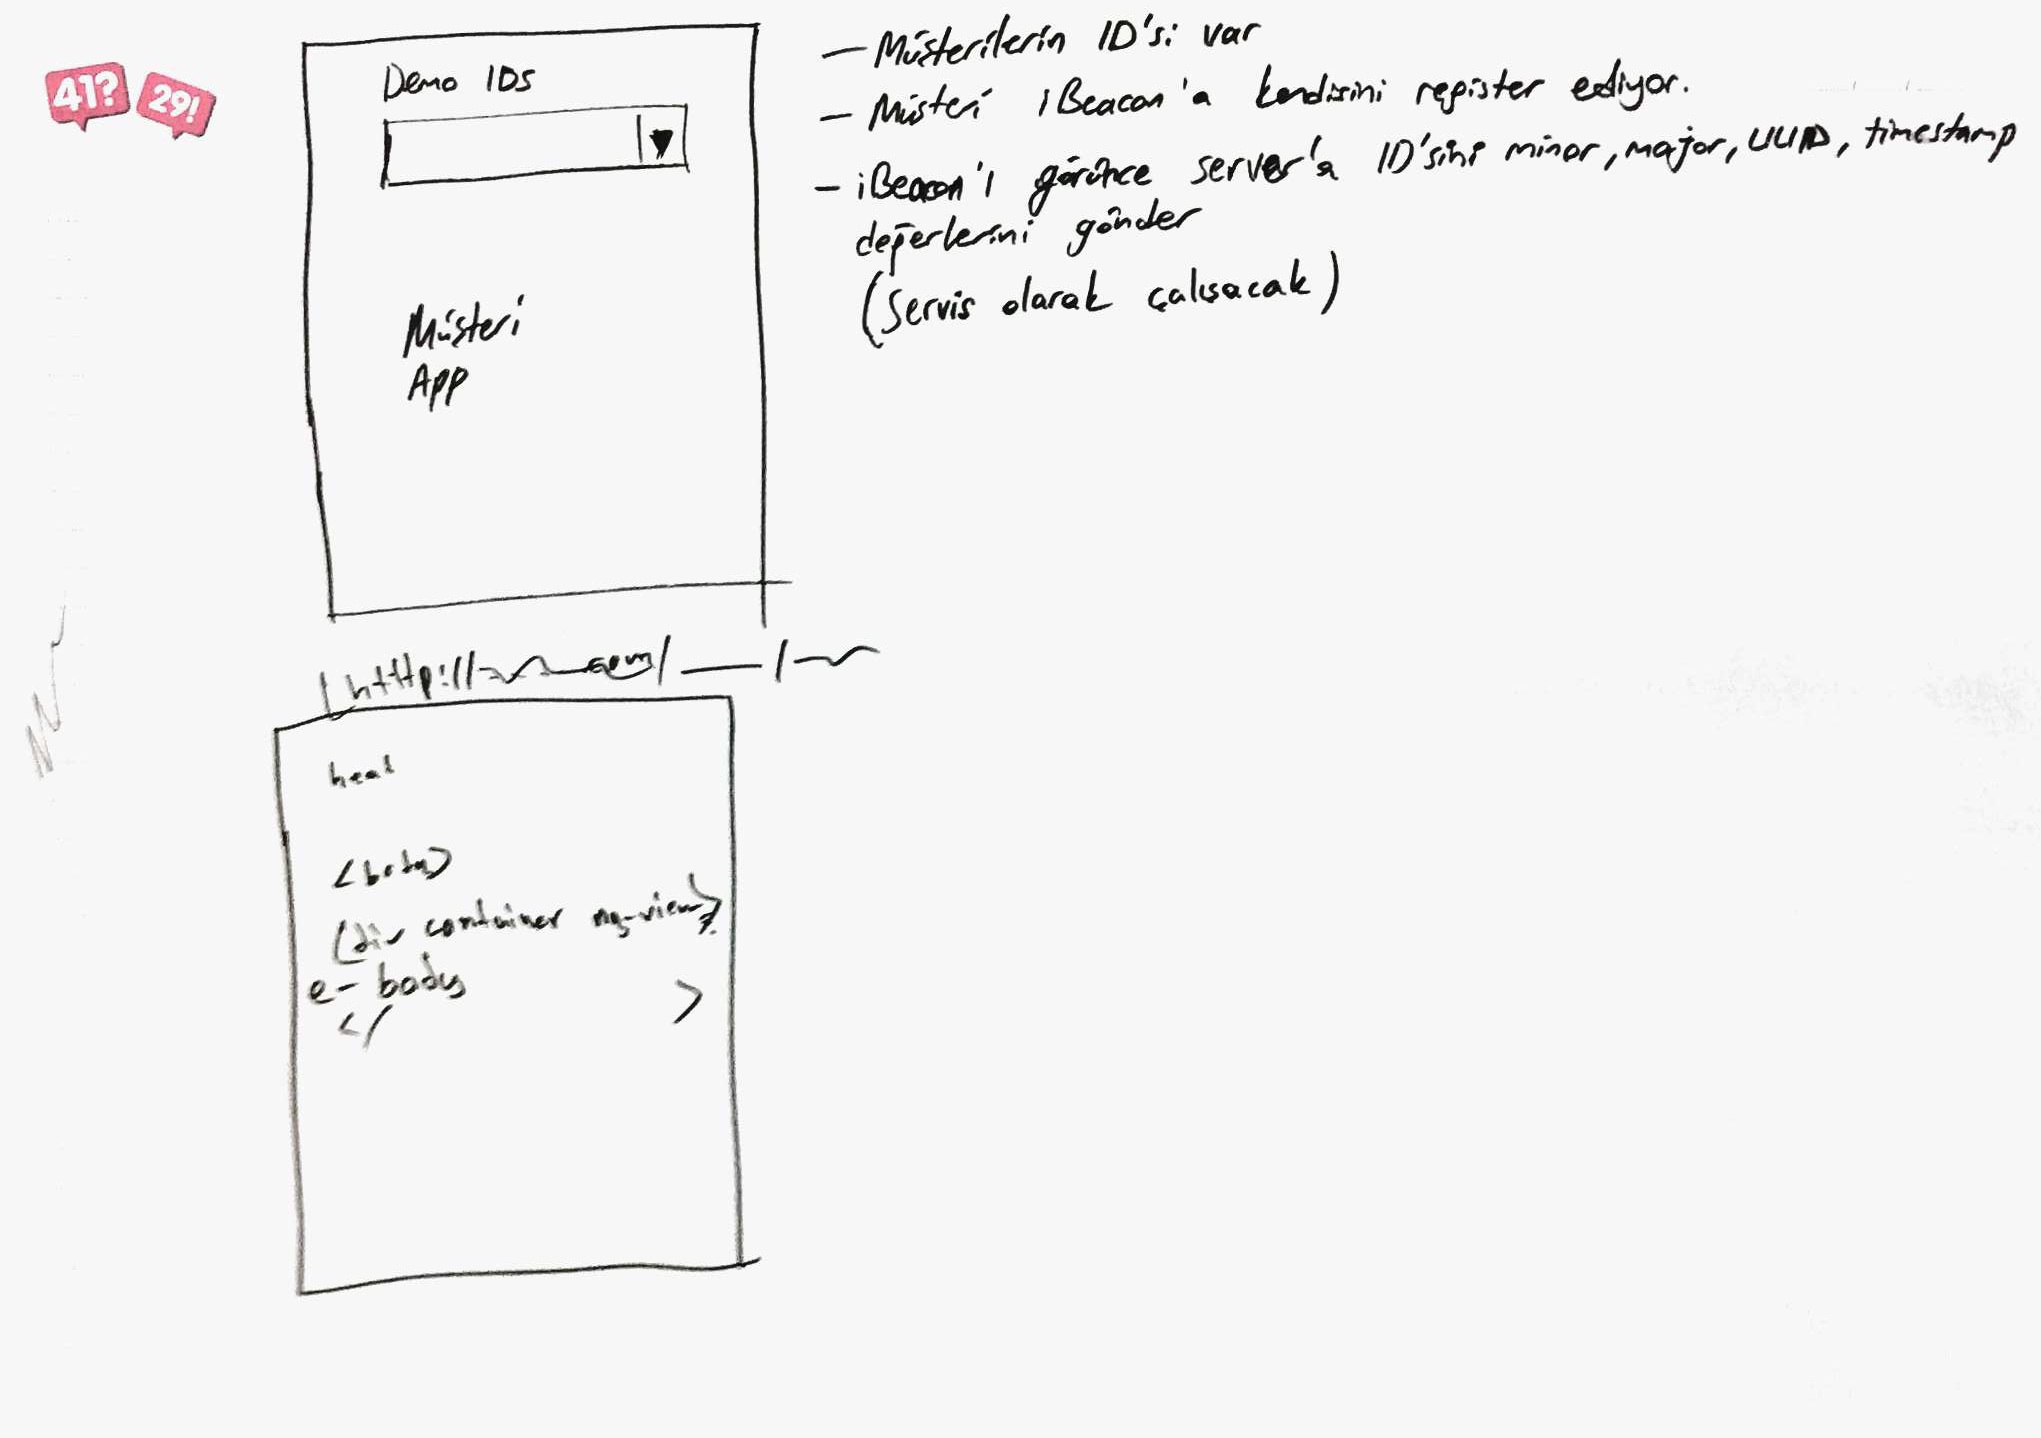 41? 29!
Demo IDs
Müşteri
App
— Müşterilerin ID'si var
— Müşteri iBeacon'a kendisini register ediyor.
— iBeacon'ı görünce server'a ID'sini minor, major, UUID, timestamp
değerlerini gönder
(Servis olarak çalışacak)
http://
head
<body>
<div container ng-view>
e- body
</ >